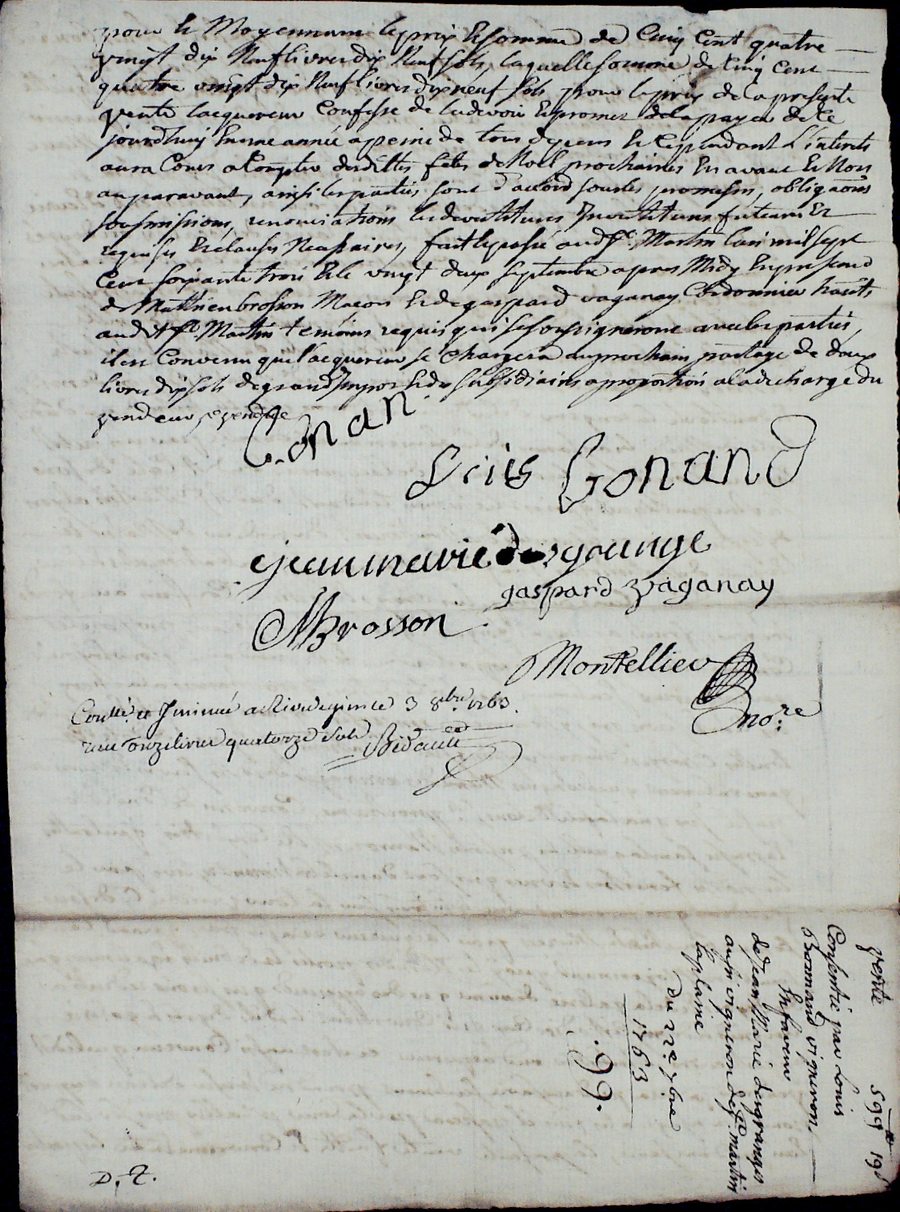 pour le Moyennant le prix et somme de Cinq Cent quatre
vingt dix Neuf livres dix Neuf sols, laquelle somme de Cinq Cent
quatre vingt dix Neuf livres dix neuf sols pour le prix de la presente
vente lacquereur Confesse de la devoir Et promet de la payer de ce
jourdhuy En une année a peine de tous depens Et Cependant L'interets
aura Cours a Compter des dittes fetes de Noel prochaines En avant Et Non
auparavant, ainsi les parties sont d'accord sous les promesses, obligaons
soumissions, renonciations les devestitures Investitures
requises Et clauses Necessaires, fait Et passé aud St. Martin Lan mil sept
Cent soixante trois Et le vingt deux septembre apres Midy En presence
de Mathieu brosson Macon Et de gaspard vaganay Cordonnier habts.
aud St. Martin temoins requis qui se soussigneront avec les parties,
il est Convenu que l'acquereur se Chargera au prochain partage de deux
livres dix sols de grand Impos Et des subsidiaires a proportion a la decharge du
vendeur
Gonan.
Louis Gonand
jean marie des grange
gaspard vaganay
MBrosson
Montellier
nore.
Contté. et Jnsinué a Rivedegier ce 3 8bre. 1763.
recu onze livres quatorze sols Bidault
vente 599tt 19s
Consentie par Louis
Bonnand vigneron
En faveur
de Jean Marie desgranges
aussi vigneron de St. martin
la plaine
du 22e. 7bre
1763
.99.
D. T.